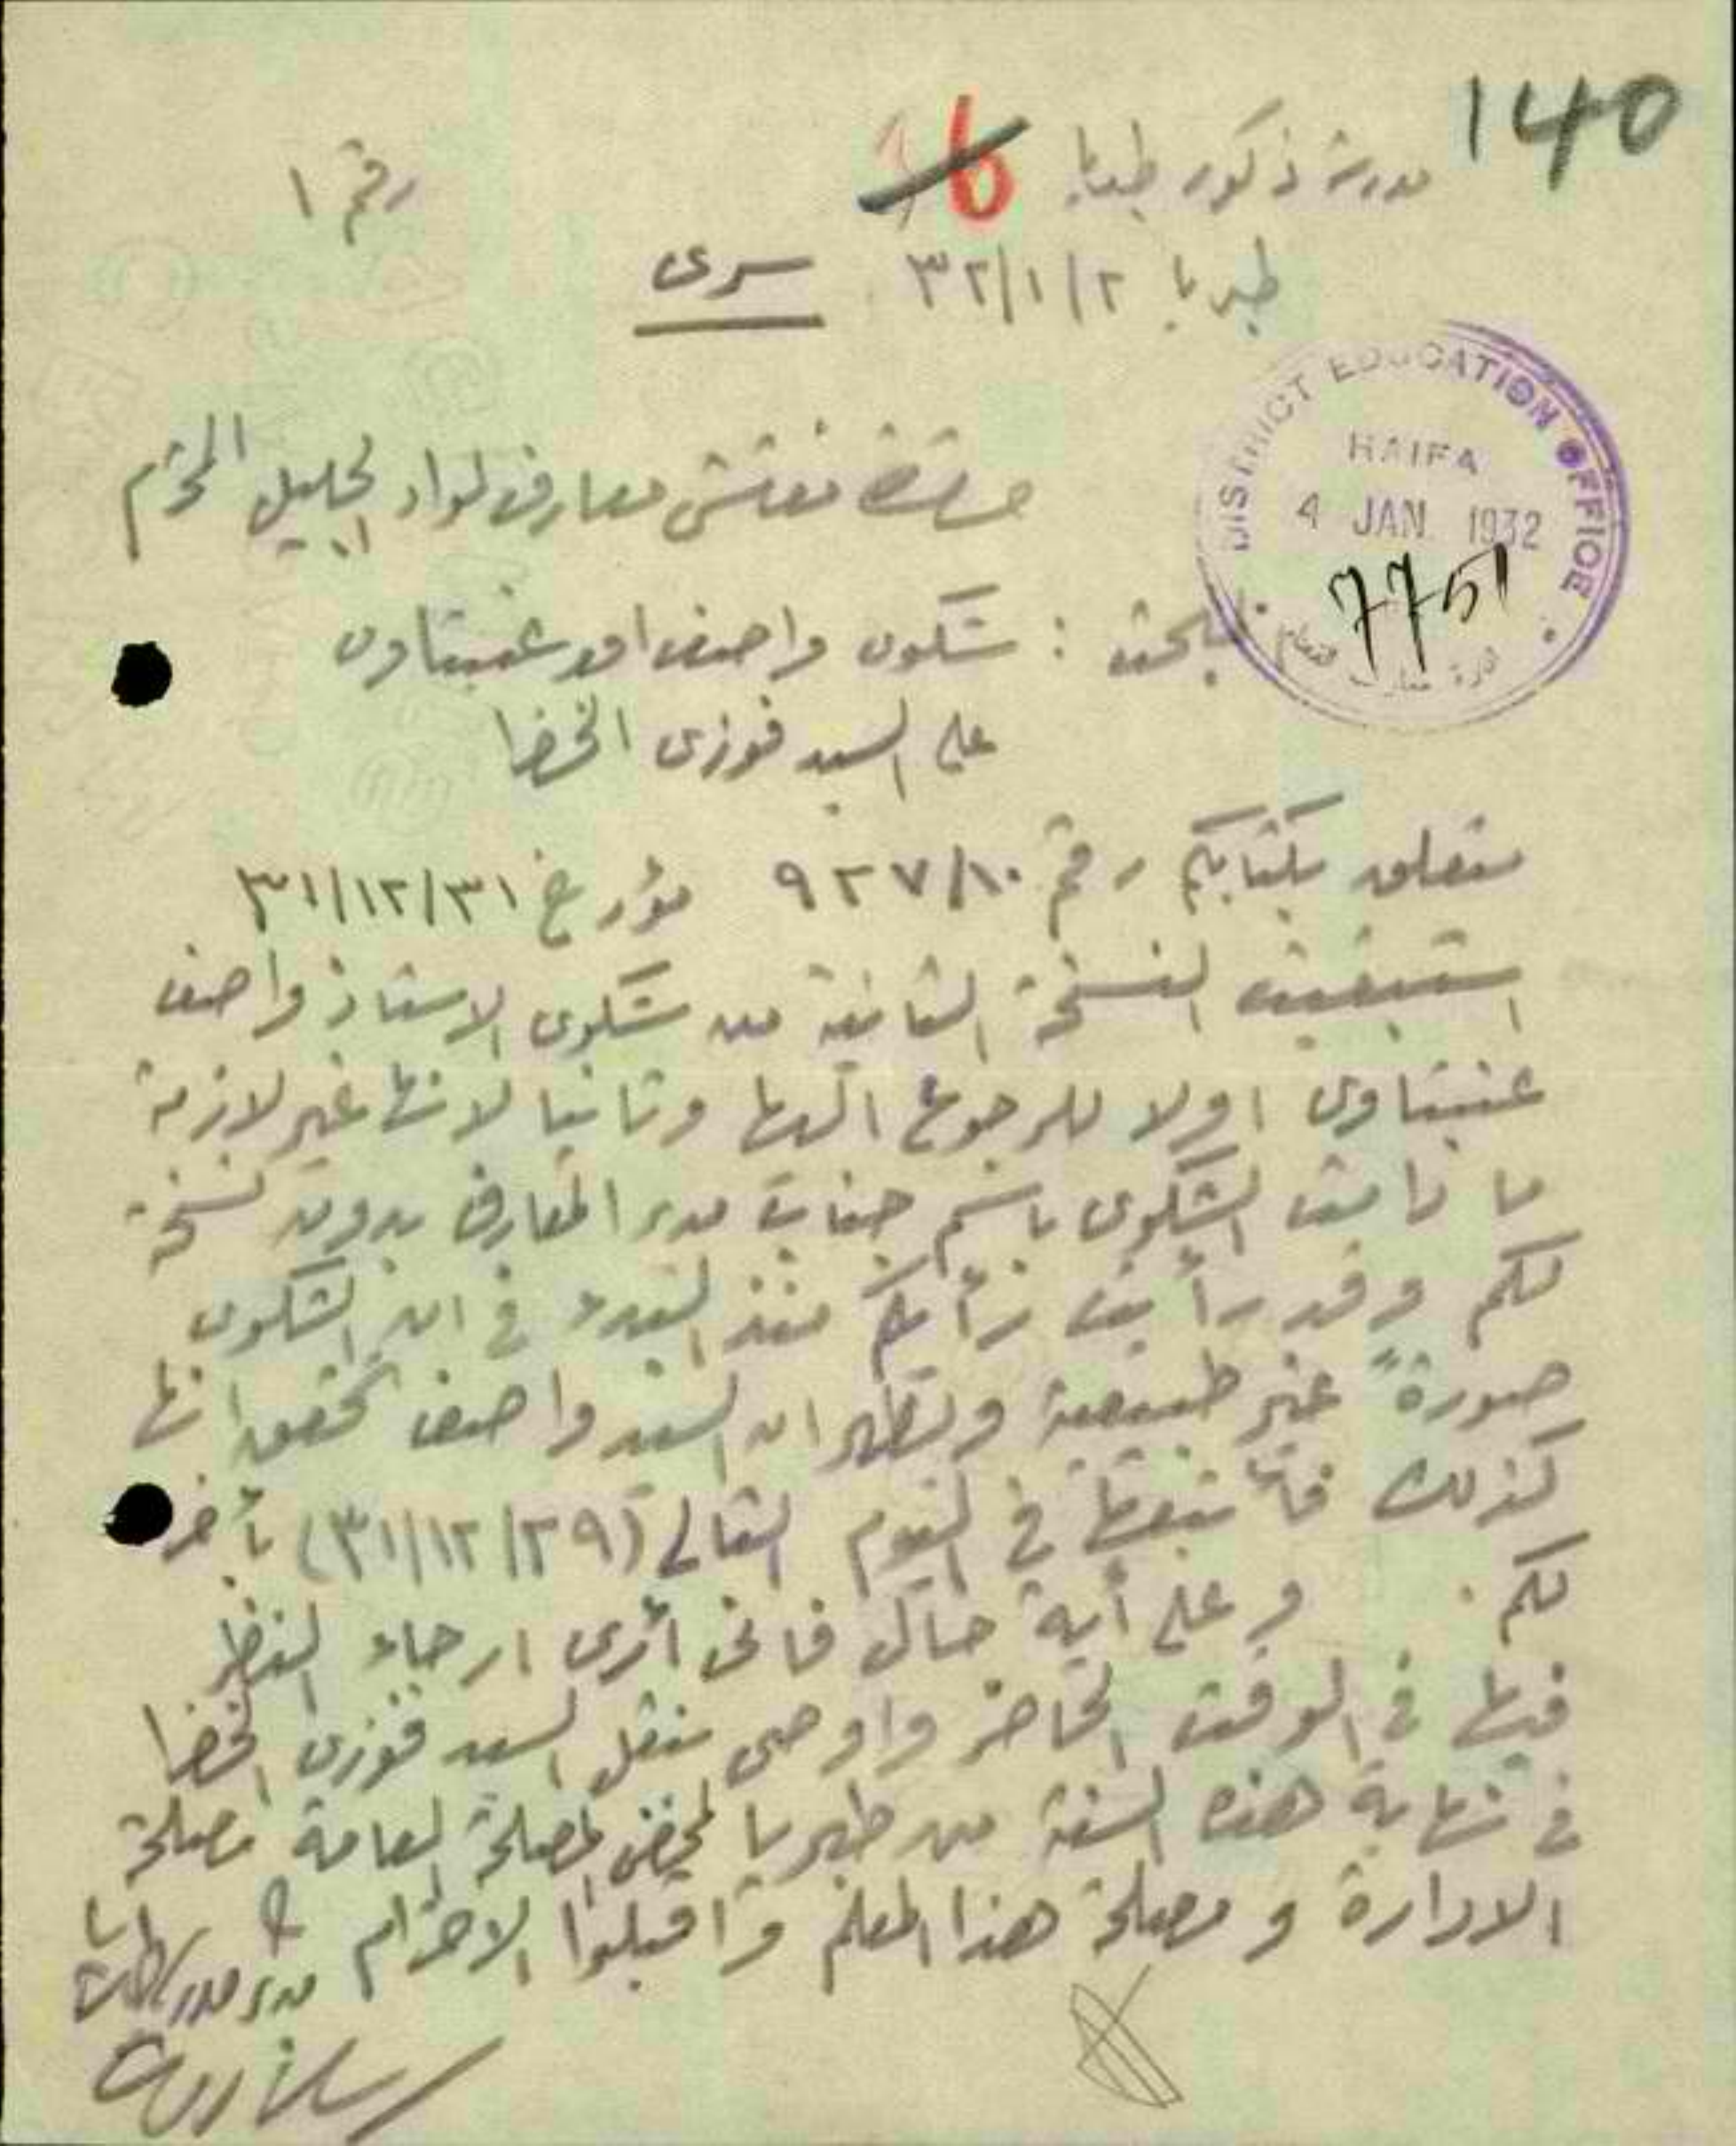 140
مدرسة ذكور طبريا 6
رقم ١
طبريا ٣٢/١/٢ سرى
DISTRICT EDUCATION OFFICE
HAIFA
4 JAN. 1932
7751
حضرة مفتش معارف لواء الجليل المحترم
البحث : شكوى واصف عنبتاوى
على السيد فوزى الخضرا
متعلق بكتابكم رقم ٩٢٧/١٠ مؤرخ ٣١/١٢/٣١
استبقيت النسخة الثانية من شكوى الاستاذ واصف
عنبتاوى اولا للرجوع اليها وثانيا لانها غير لازمة
ما دامت الشكوى باسم جناب مدير المعارف بدون نسخة
لكم وقد رأيت رأيكم منذ البدء في ان الشكوى
صورةً غير طبيعية ويظهر ان السيد واصف تحقق انها
كذلك فأتبعها في اليوم التالى (٣١/١٢/٢٩) بأخرى
لكم . وعلى أية حال فانى أرى ارجاء النظر
فيها في الوقت الحاضر واوصى بنقل السيد فوزى الخضرا
في نهاية هذه السنة من طبريا لمحض المصلحة العامة مصلحة
الادارة و مصلحة هذا المعلم واقبلوا الاحترام
مدير مدرسة طبريا